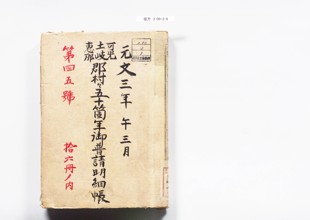 元文三年 午三月
可児
土岐
恵那
郡村々五十箇年御普請明細帳
第四五號
拾六冊ノ内